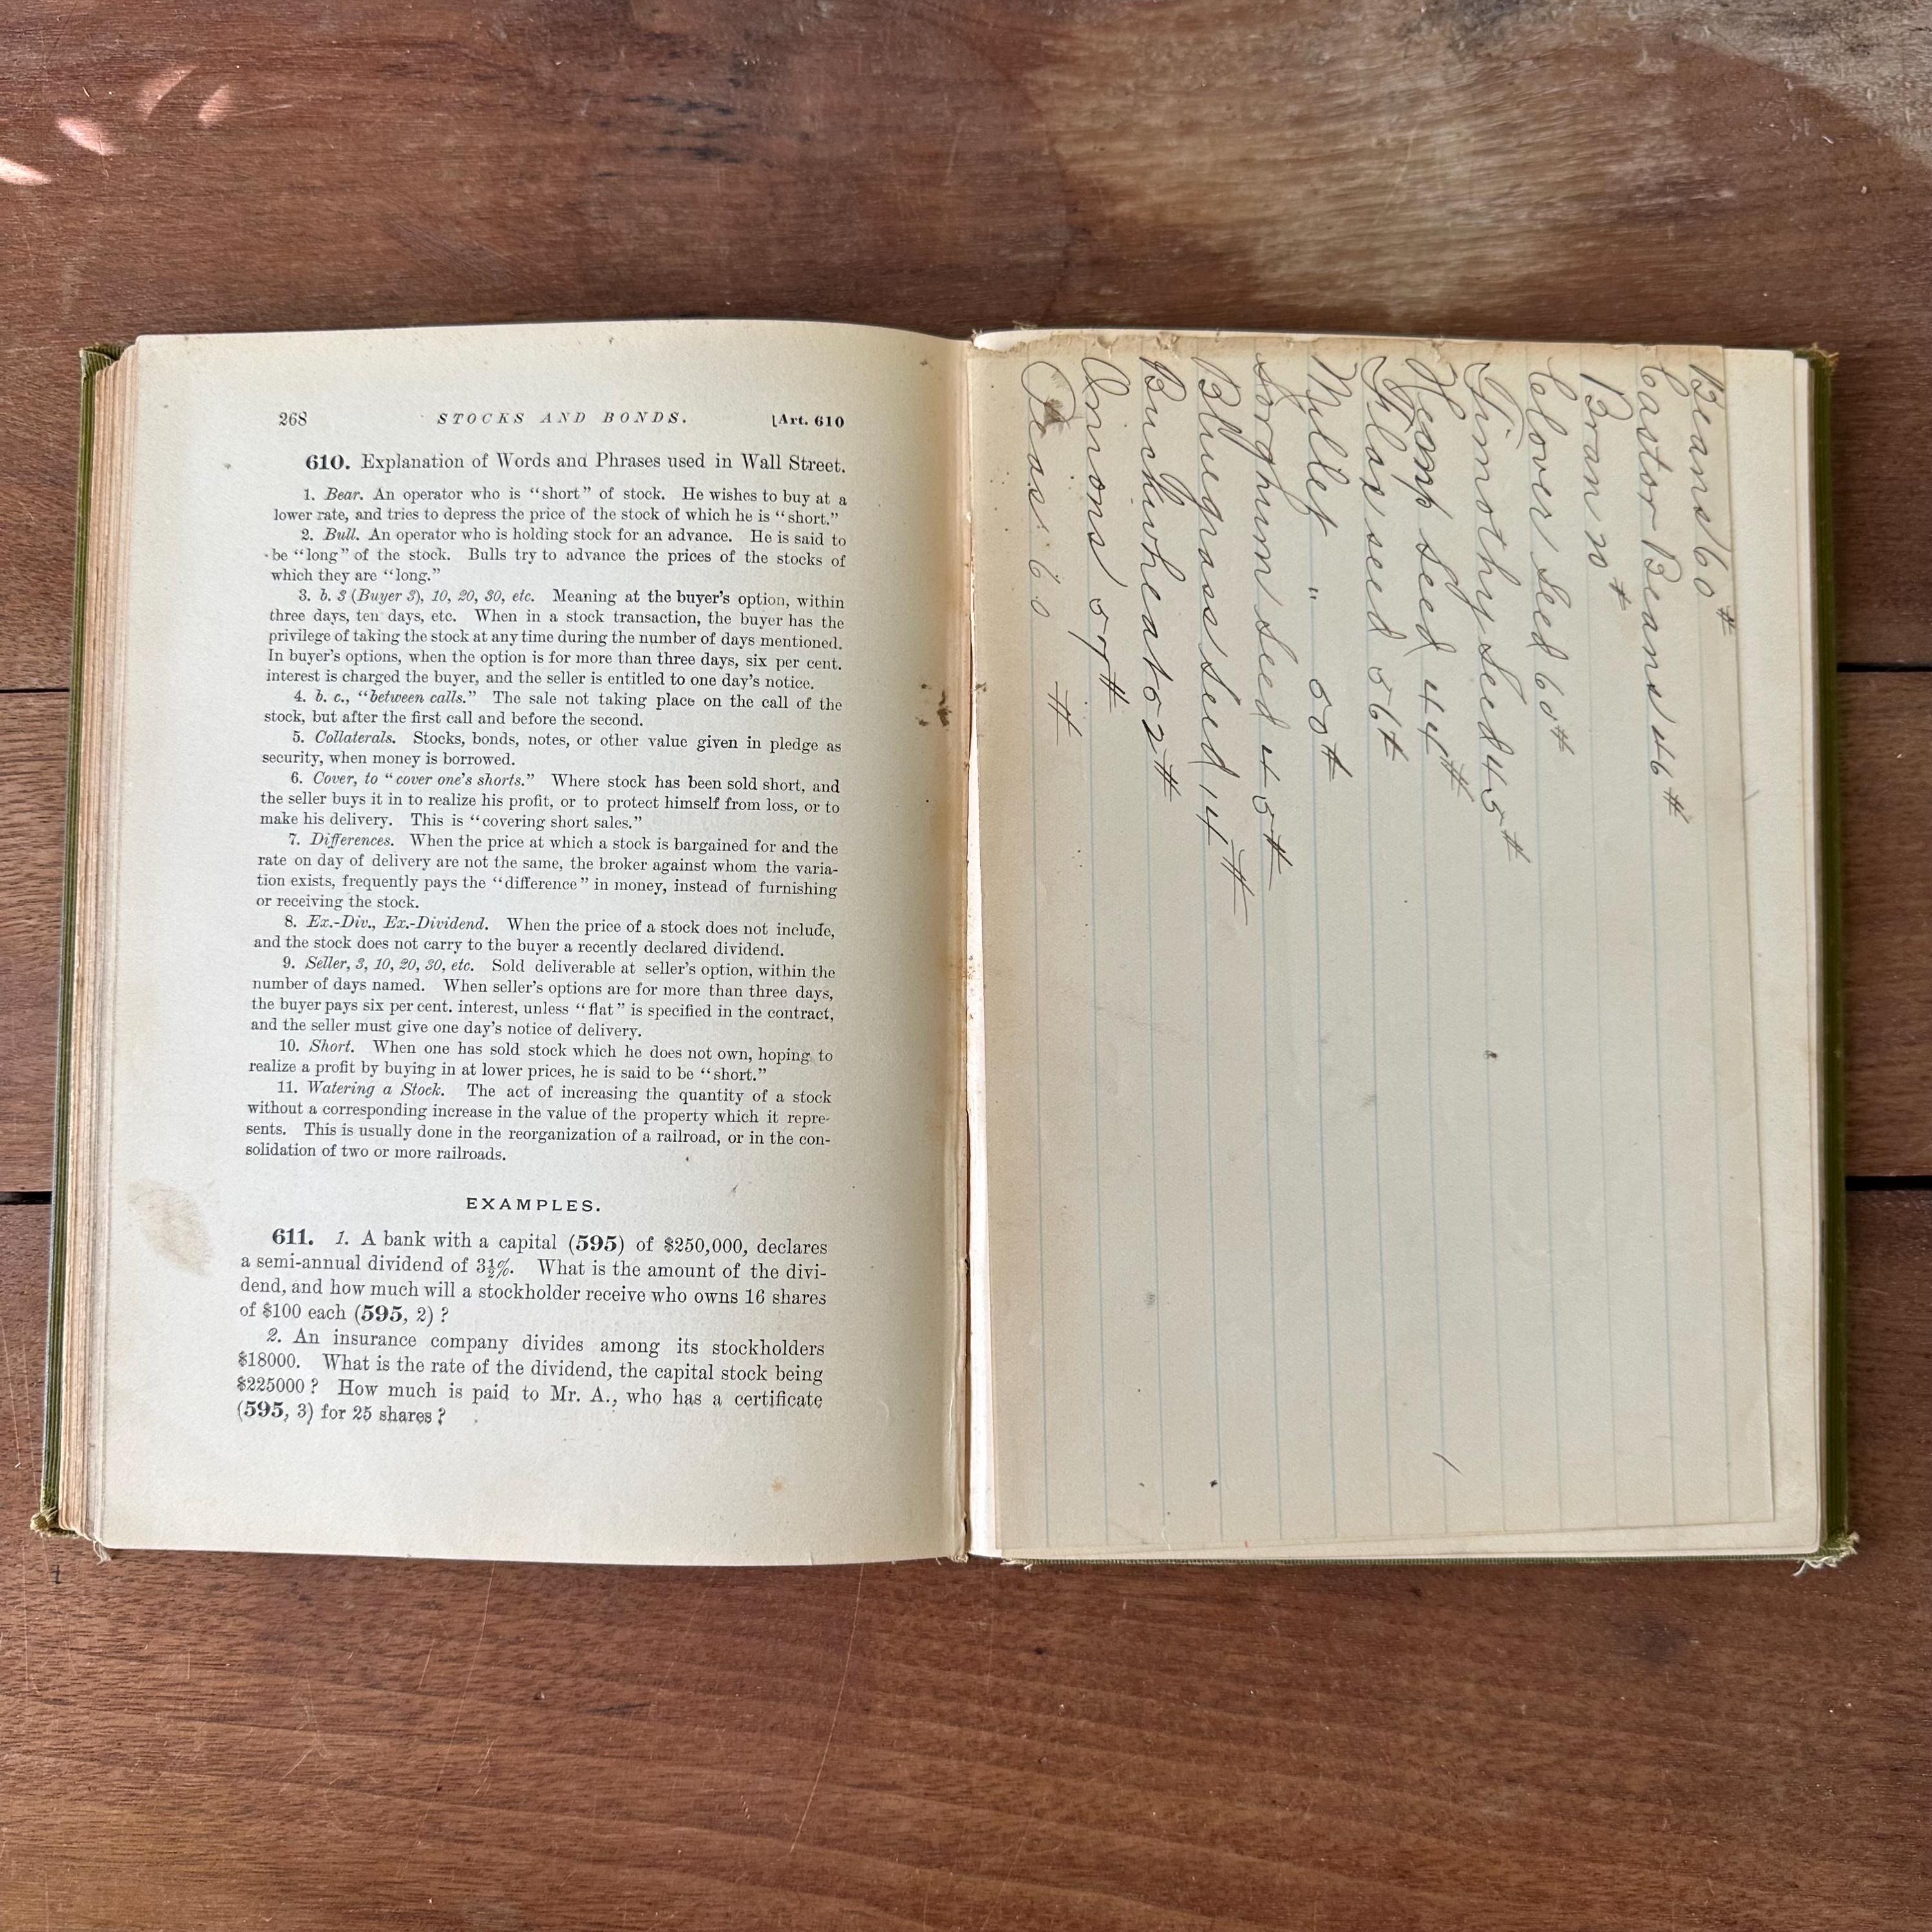 268 STOCKS AND BONDS. [Art. 610
610. Explanation of Words and Phrases used in Wall Street.
1. Bear. An operator who is “short” of stock. He wishes to buy at a
lower rate, and tries to depress the price of the stock of which he is “short.”
2. Bull. An operator who is holding stock for an advance. He is said to
be “long” of the stock. Bulls try to advance the prices of the stocks of
which they are “long.”
3. b. 3 (Buyer 3), 10, 20, 30, etc. Meaning at the buyer's option, within
three days, ten days, etc. When in a stock transaction, the buyer has the
privilege of taking the stock at any time during the number of days mentioned.
In buyer's options, when the option is for more than three days, six per cent.
interest is charged the buyer, and the seller is entitled to one day's notice.
4. b. c., “between calls.” The sale not taking place on the call of the
stock, but after the first call and before the second.
5. Collaterals. Stocks, bonds, notes, or other value given in pledge as
security, when money is borrowed.
6. Cover, to “cover one's shorts.” Where stock has been sold short, and
the seller buys it in to realize his profit, or to protect himself from loss, or to
make his delivery. This is “covering short sales.”
7. Differences. When the price at which a stock is bargained for and the
rate on day of delivery are not the same, the broker against whom the varia-
tion exists, frequently pays the “difference” in money, instead of furnishing
or receiving the stock.
8. Ex.-Div., Ex.-Dividend. When the price of a stock does not include,
and the stock does not carry to the buyer a recently declared dividend.
9. Seller, 3, 10, 20, 30, etc. Sold deliverable at seller's option, within the
number of days named. When seller's options are for more than three days,
the buyer pays six per cent. interest, unless “flat” is specified in the contract,
and the seller must give one day's notice of delivery.
10. Short. When one has sold stock which he does not own, hoping to
realize a profit by buying in at lower prices, he is said to be “short.”
11. Watering a Stock. The act of increasing the quantity of a stock
without a corresponding increase in the value of the property which it repre-
sents. This is usually done in the reorganization of a railroad, or in the con-
solidation of two or more railroads.
EXAMPLES.
611. 1. A bank with a capital (595) of $250,000, declares
a semi-annual dividend of 3½%. What is the amount of the divi-
dend, and how much will a stockholder receive who owns 16 shares
of $100 each (595, 2) ?
2. An insurance company divides among its stockholders
$18000. What is the rate of the dividend, the capital stock being
$225000 ? How much is paid to Mr. A., who has a certificate
(595, 3) for 25 shares ?
Beans 60 #
Castor Beans 46 #
Bran 20 #
Clover Seed 60 #
Timothy Seed 45 #
Hemp Seed 44 #
Flax seed 56 #
Millet " 50 #
Sorghum Seed 45 #
Bluegrass Seed 14 #
Buckwheat 52 #
Onions 57 #
Peas 60 #